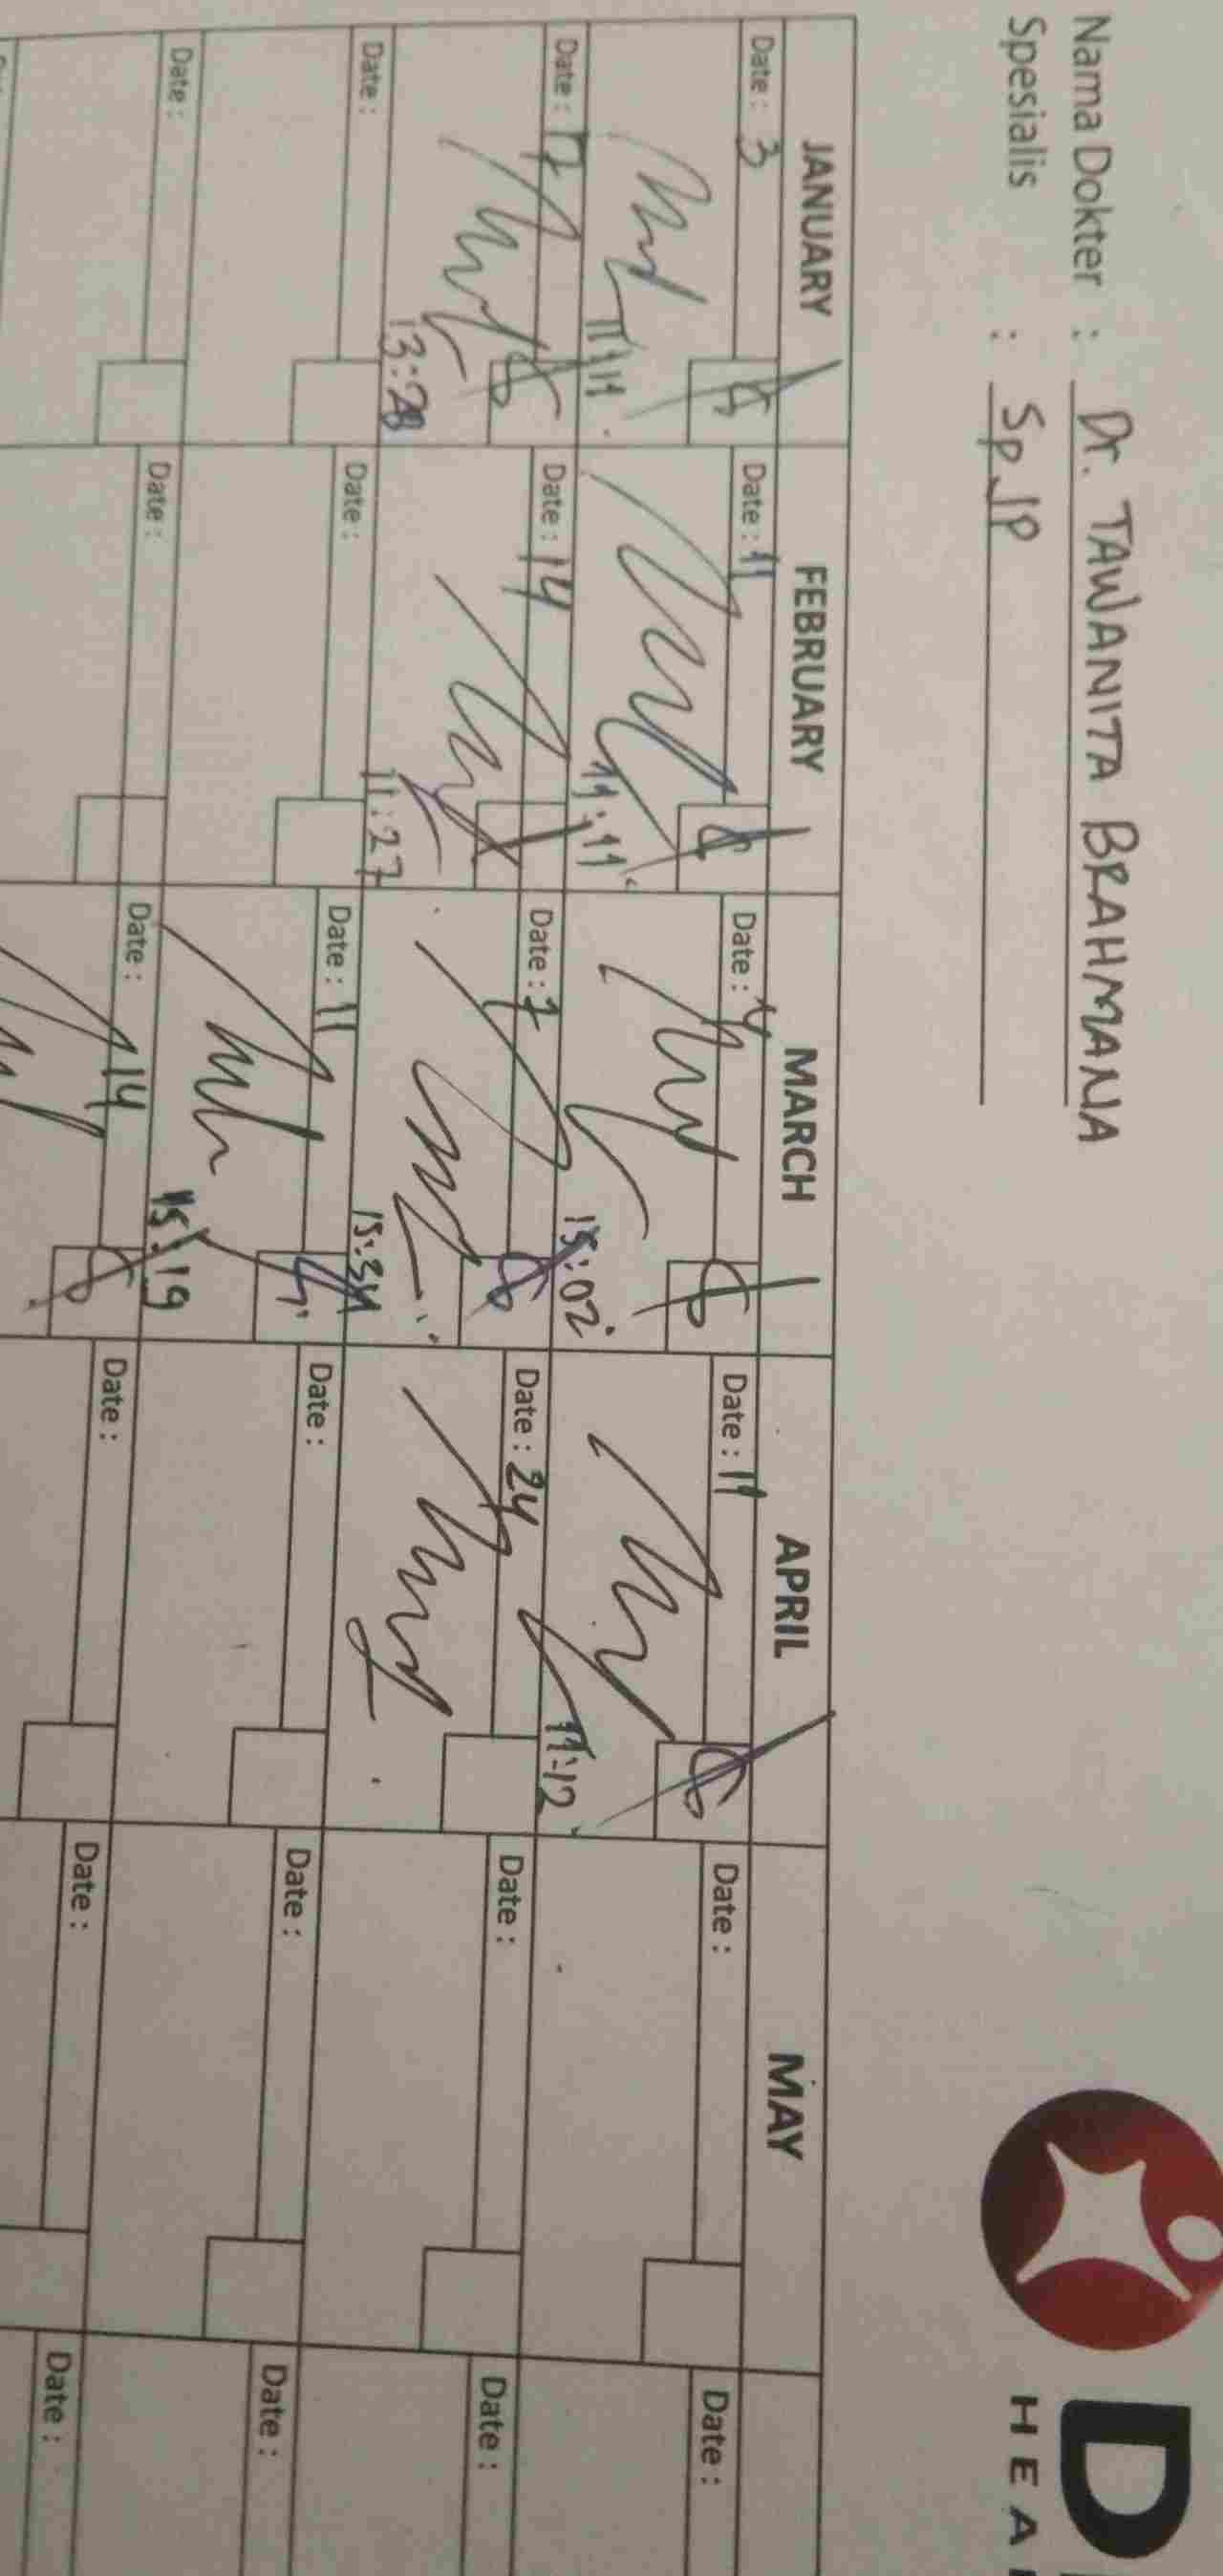 Nama Dokter : Dr. TAWANITA BRAHMANA
Spesialis : Sp JP
HEA
JANUARY FEBRUARY MARCH APRIL MAY
Date : 3 Date : 11 Date : 4 Date : 11 Date : Date :
11:11 15:02 11:12
Date : 17 Date : 14 Date : 7 Date : 24 Date : Date :
13:28 11:27 15:34
Date : Date : Date : 11 Date : Date : Date :
15:19
Date : Date : Date : 14 Date : Date : Date :